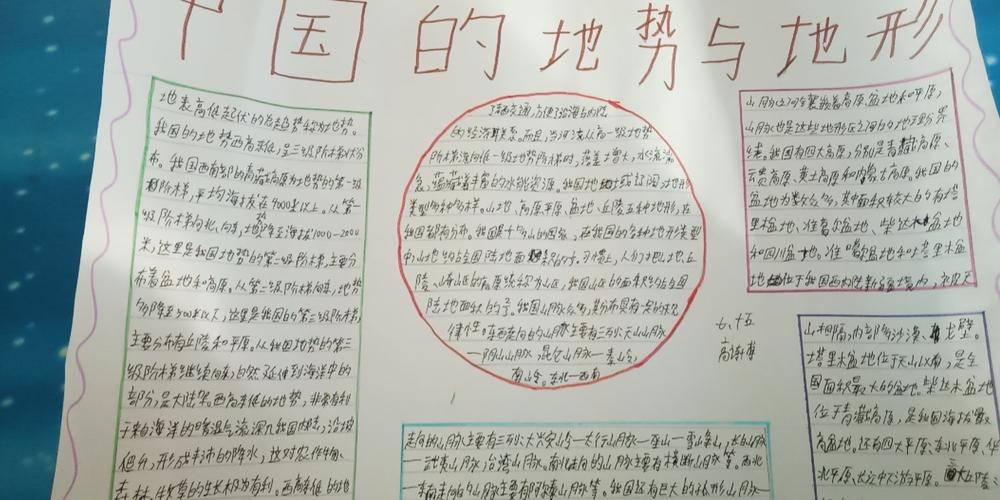 中国的地势与地形
地表高低起伏的总趋势称为地势。
我国的地势西高东低,呈三级阶梯状分
布。我国西南部的青藏高原为地势的第一级
阶梯,平均海拔在4000米以上。从第一
级阶梯向北、向东,地势降至海拔1000—2000
米,这里是我国地势的第二级阶梯,主要分
布着盆地和高原。从第二级阶梯向东,地势
多降至500米以下,这里是我国的第三级阶梯,
主要分布有丘陵和平原。从我国地势的第三
级阶梯继续向东,自然延伸到海洋中的
部分,是大陆架。西高东低的地势,非常有利
于来自海洋的暖湿气流深入我国内陆,沿坡
抬升,形成丰沛的降水,这对农作物、
森林、牧草的生长极为有利。西高东低的地
了东西交通,方便了沿海与内陆
的经济联系。而且,当河流从高一级地势
阶梯流向低一级地势阶梯时,落差增大,水流湍
急,蕴藏着丰富的水能资源。我国地域辽阔,地形
类型多种多样。山地、高原、平原、盆地、丘陵五种地形,在
我国都有分布。我国是个多山的国家,在我国的各种地形类型
中,山地约占全国陆地面积的。习惯上,人们把山地、丘
陵、崎岖的高原统称为山区,我国山区的面积约占全国
陆地面积的。我国山脉众多,其分布具有一定的规
律性。东西走向的山脉主要有三列:天山—山脉
—阴山山脉,昆仑山脉—秦岭,
南岭。东北—西南
山脉之间镶嵌着高原、盆地和平原,
山脉也是这些地形区之间的地理分界
线。我国有四大高原,分别是青藏高原、
云贵高原、黄土高原和内蒙古高原。我国的
盆地为数众多,其中面积较大的有塔
里木盆地、准噶尔盆地、柴达木盆地
和四川盆地。准噶尔盆地和塔里木盆
地位于我国西北内陆新疆境内,被天
七、十五
走向的山脉主要有三列:大兴安岭—太行山脉—巫山—雪峰山,长白山脉
—武夷山脉,台湾山脉。南北走向的山脉主要有横断山脉等。西北
—东南走向的山脉主要有阿尔泰山脉等。我国还有巨大的弧形山脉—
山相隔,内部多沙漠、戈壁。
塔里木盆地位于天山以南,是全
国面积最大的盆地。柴达木盆地
位于青藏高原,是我国海拔最
高盆地。还有四大平原、东北平原、华
北平原、长江中下游平原。